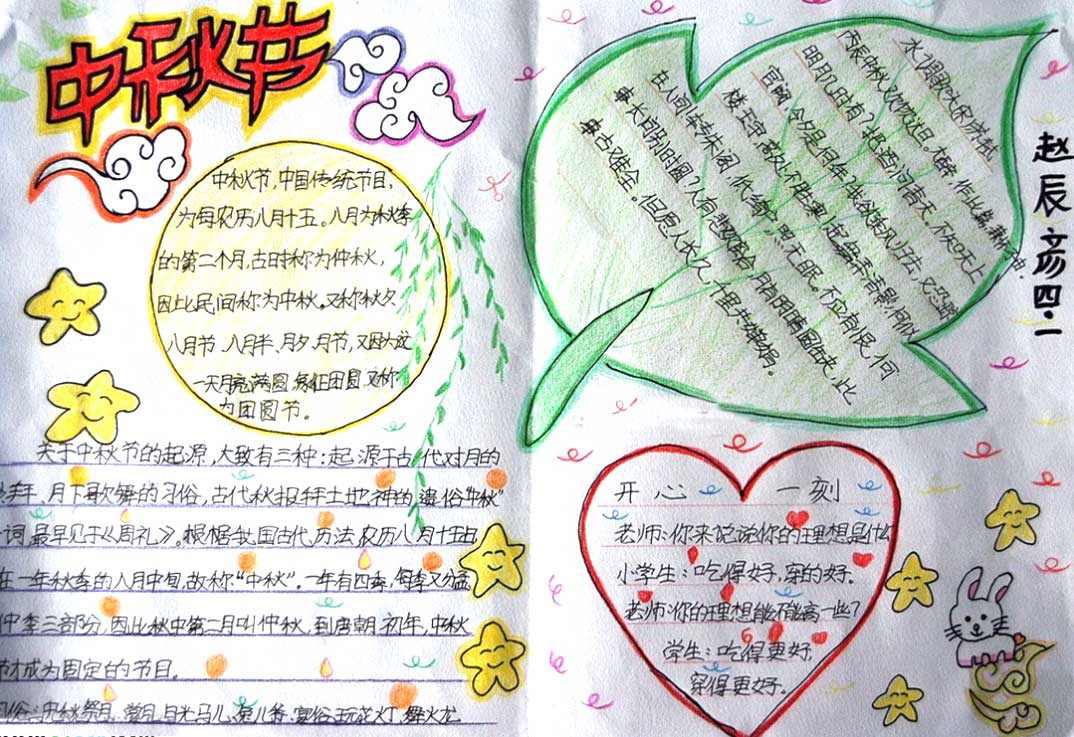 中秋节
中秋节,中国传统节目,
为每农历八月十五。八月为秋季
的第二个月,古时称为仲秋,
因此民间称为中秋。又称秋夕
八月节、八月半、月夕、月节,又因为这
一天月亮满圆,象征团圆,又称
为团圆节。
关于中秋节的起源,大致有三种:起源于古代对月的
、月下歌舞的习俗,古代秋报拜土地神的遗俗"中秋"
一词,最早见于《周礼》。根据我国古代历法,农历八月十五
在一年秋季的八月中旬,故称"中秋"。一年有四季,每季又分孟
仲季三部分,因此秋中第二月叫仲秋,到唐朝初年,中秋
节才成为固定的节目。
俗:中秋祭月、赏月、月光马儿、兔儿爷、宴俗、玩花灯、舞火龙
水调歌头 宋 苏轼
丙辰中秋,欢饮达旦。大醉,作此篇,兼怀子由
明月几时有?把酒问青天。不知天上
宫阙,今夕是何年?我欲乘风归去,又恐琼
楼玉宇,高处不胜寒,起舞弄清影,何似
在人间!转朱阁,低绮户,照无眠。不应有恨,何
事长向别时圆?人有悲欢离合,月有阴晴圆缺,此
事古难全。但愿人长久,千里共婵娟。
赵辰彦四·一
开心一刻
老师:你来说说你的理想是什么
小学生:吃得好,穿的好.
老师:你的理想能不能高一些?
学生:吃得更好,
穿得更好。